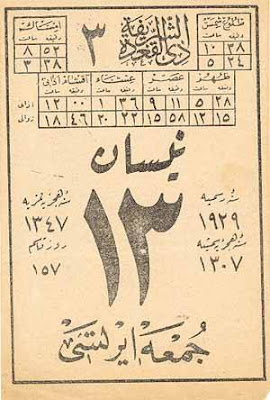 طلوع شمس
دقيقه ساعت
٣٨ ١٠
٢٤ ٥
ذى القعدة الشريفه
٣
امساك
دقيقه ساعت
٥٢ ٨
٣٨ ٣
ظهر عصر عشاء
دقيقه ساعت دقيقه ساعت دقيقه ساعت دقيقه ساعت
اذانى ٢٨ ٥ ١١ ٩ ٣٦ ١ ٠٠ ١٢
زوالى ١٥ ١٢ ٥٨ ١٥ ٢٢ ٢٠ ٤٦ ١٨
نيسان
١٣
سنه رسميه
١٩٢٩
سنه هجريه شمسيه
١٣٠٧
سنه هجريه قمريه
١٣٤٧
روز قاسم
١٥٧
جمعه ايرتسى